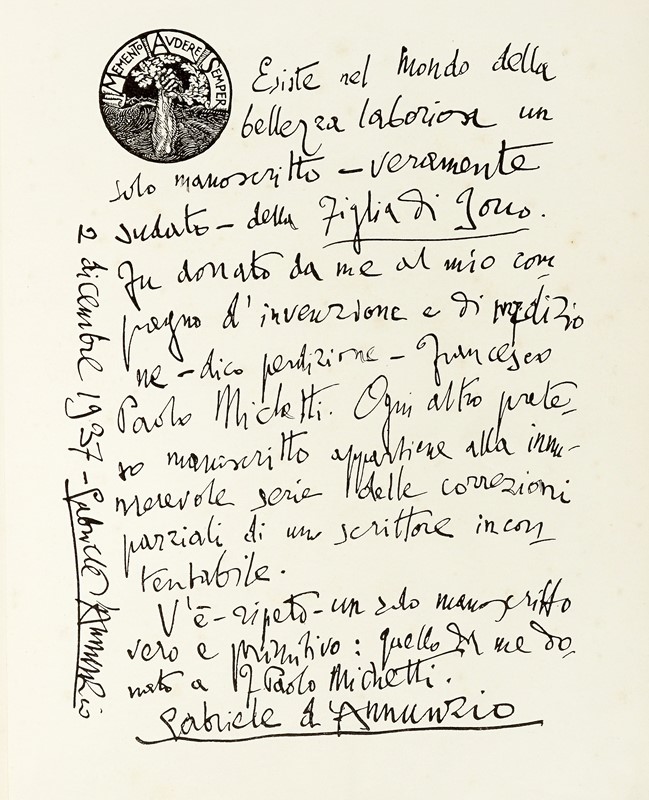 MEMENTO AVDERE SEMPER
Esiste nel Mondo della
bellezza laboriosa un
solo manoscritto – veramente
sudato – della Figlia di Iorio.
Fu donato da me al mio com-
pagno d'invenzione e di perdizio
ne – dico perdizione – Francesco
Paolo Michetti. Ogni altro prete-
so manoscritto appartiene alla innu-
merevole serie delle correzioni
parziali di uno scrittore incon
tentabile.
V'è – ripeto – un solo manoscritto
vero e primitivo : quello da me do-
nato a F Paolo Michetti.
Gabriele d'Annunzio
2 dicembre 1937 – Gabriele d'Annunzio